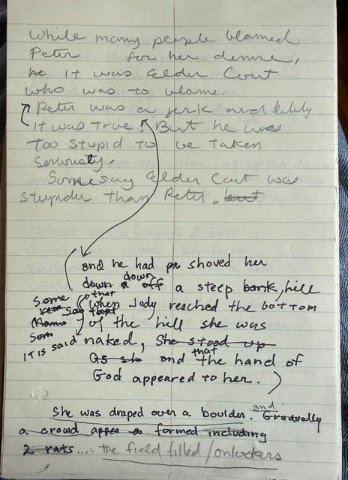 While many people blamed
Peter for her demise,
he It was Elder Cout
who was to blame.
Peter was a jerk and bully
It was true. But he was
too stupid to be taken
seriously.
Some say Elder Cout was
stupider than Peter, but
and he had pu shoved her
down down off a steep bank, hill
Some say that when Jody reached the bottom
of the hill she was
It is said naked, She stood up
and that the hand of
God appeared to her.
She was draped over a boulder. and Gradually
a crowd appea formed including
2 rats... the field filled / onlookers